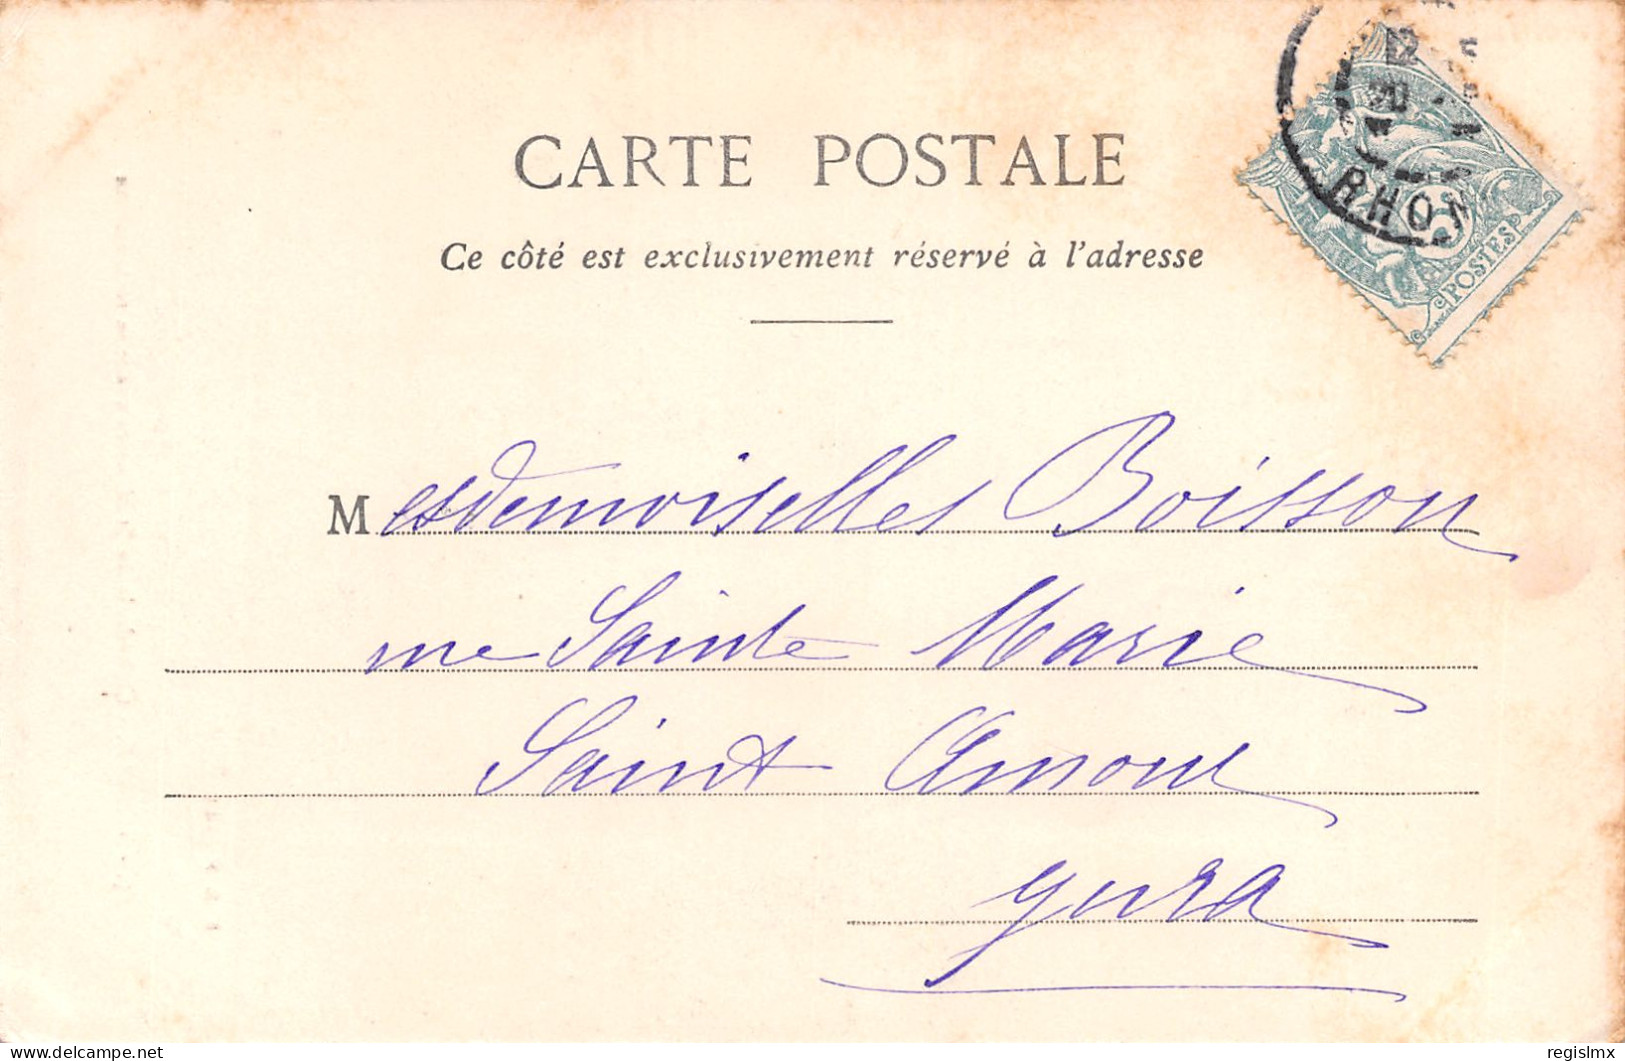 CARTE POSTALE
Ce côté est exclusivement réservé à l'adresse
RHONE
5
POSTES
Mesdemoiselles Boisson
rue Sainte Marie
Saint Amour
Jura
delcampe.net
regislmx